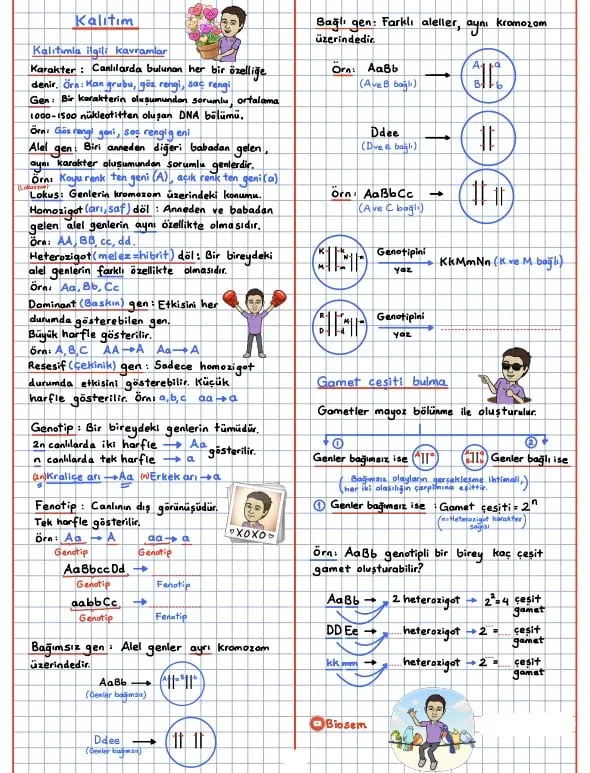 Kalıtım
Kalıtımla ilgili kavramlar
Karakter : Canlılarda bulunan her bir özelliğe
denir. Örn: Kan grubu, göz rengi, saç rengi
Gen : Bir karakterin oluşumundan sorumlu, ortalama
1000-1500 nükleotitten oluşan DNA bölümü.
Örn: Göz rengi geni, saç rengi geni
Alel gen : Biri anneden diğeri babadan gelen,
aynı karakter oluşumundan sorumlu genlerdir.
Örn: Koyu renk ten geni (A), açık renk ten geni (a)
Lokus: Genlerin kromozom üzerindeki konumu.
Homozigot (arı, saf) döl : Anneden ve babadan
gelen alel genlerin aynı özellikte olmasıdır.
Örn: AA, BB, cc, dd.
Heterozigot (melez=hibrit) döl : Bir bireydeki
alel genlerin farklı özellikte olmasıdır.
Örn: Aa, Bb, Cc
Dominant (Baskın) gen : Etkisini her
durumda gösterebilen gen.
Büyük harfle gösterilir.
Örn: A, B, C AA → A Aa → A
Resesif (Çekinik) gen : Sadece homozigot
durumda etkisini gösterebilir. Küçük
harfle gösterilir. Örn: a, b, c aa → a
Genotip : Bir bireydeki genlerin tümüdür.
2n canlılarda iki harfle → Aa
n canlılarda tek harfle → a gösterilir.
(2n) Kraliçe arı → Aa (n) Erkek arı → a
Fenotip : Canlının dış görünüşüdür.
Tek harfle gösterilir.
Örn: Aa → A aa → a
Genotip Genotip
XOXO
AaBbccDd → ............
Genotip Fenotip
aabbCc → ............
Genotip Fenotip
Bağımsız gen : Alel genler ayrı kromozom
üzerindedir.
AaBb → A a B b
(Genler bağımsız)
Ddee →
(Genler bağımsız)
Bağlı gen : Farklı aleller, aynı kromozom
üzerindedir.
Örn: AaBb → A a
(A ve B bağlı) B b
Ddee →
(D ve e bağlı)
Örn : AaBbCc →
(A ve C bağlı)
K k N n Genotipini → KkMmNn (K ve M bağlı)
M m yaz
R r M m Genotipini → ............
D d yaz
Gamet çeşiti bulma
Gametler mayoz bölünme ile oluşturulur.
1 2
Genler bağımsız ise Genler bağlı ise
(Bağımsız olayların gerçekleşme ihtimali,
her iki olasılığın çarpımına eşittir.)
1 Genler bağımsız ise : Gamet çeşiti = 2ⁿ
(n=Heterozigot karakter
sayısı)
Örn: AaBb genotipli bir birey kaç çeşit
gamet oluşturabilir?
AaBb → 2 heterozigot → 2²=4 çeşit
gamet
DDEe → ...... heterozigot → 2 = ...... çeşit
gamet
kkmm → ...... heterozigot → 2 = ...... çeşit
gamet
Biosem